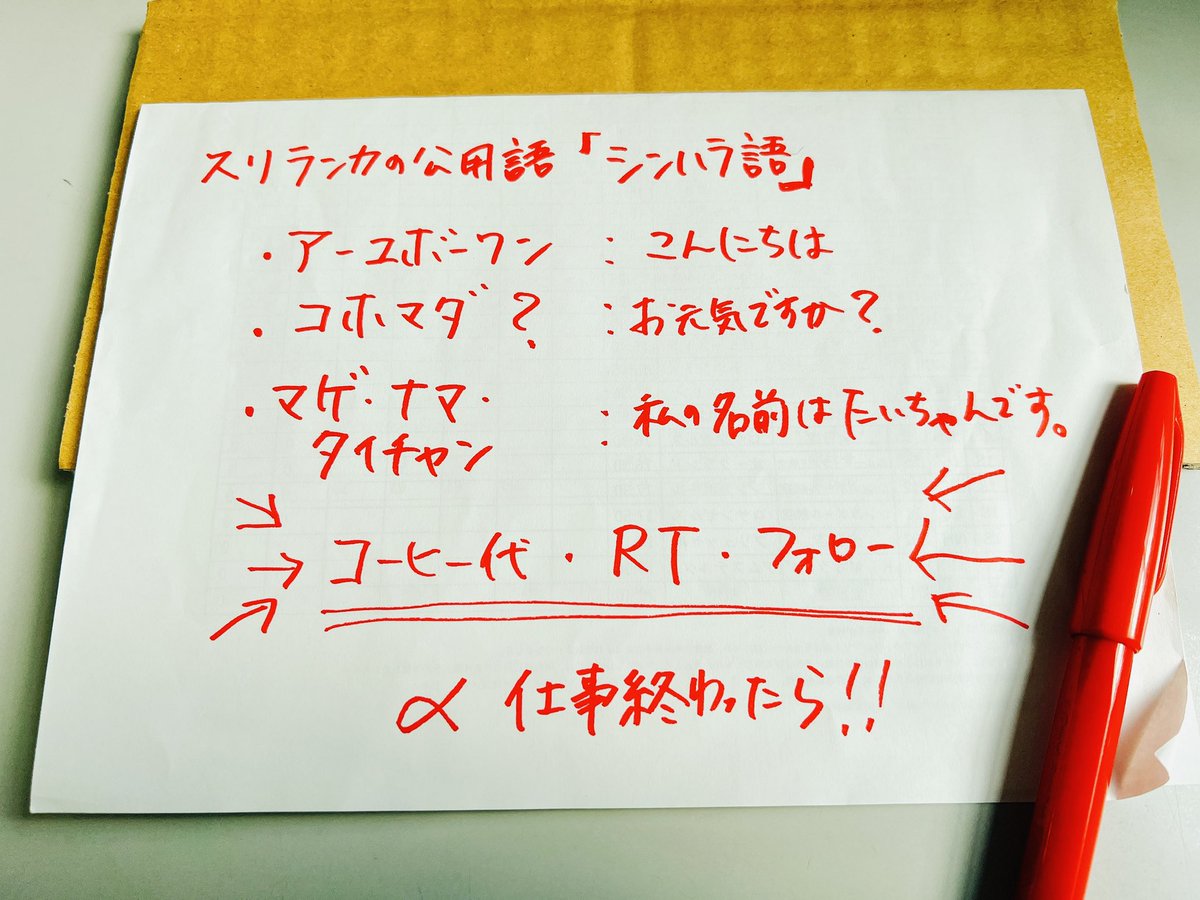 スリランカの公用語「シンハラ語」
・アーユボーワン : こんにちは
・コホマダ? : お元気ですか?
・マゲ・ナマ・ : 私の名前はたいちゃんです。
タイチャン
コーヒー代・RT・フォロー
α 仕事終わったら!!